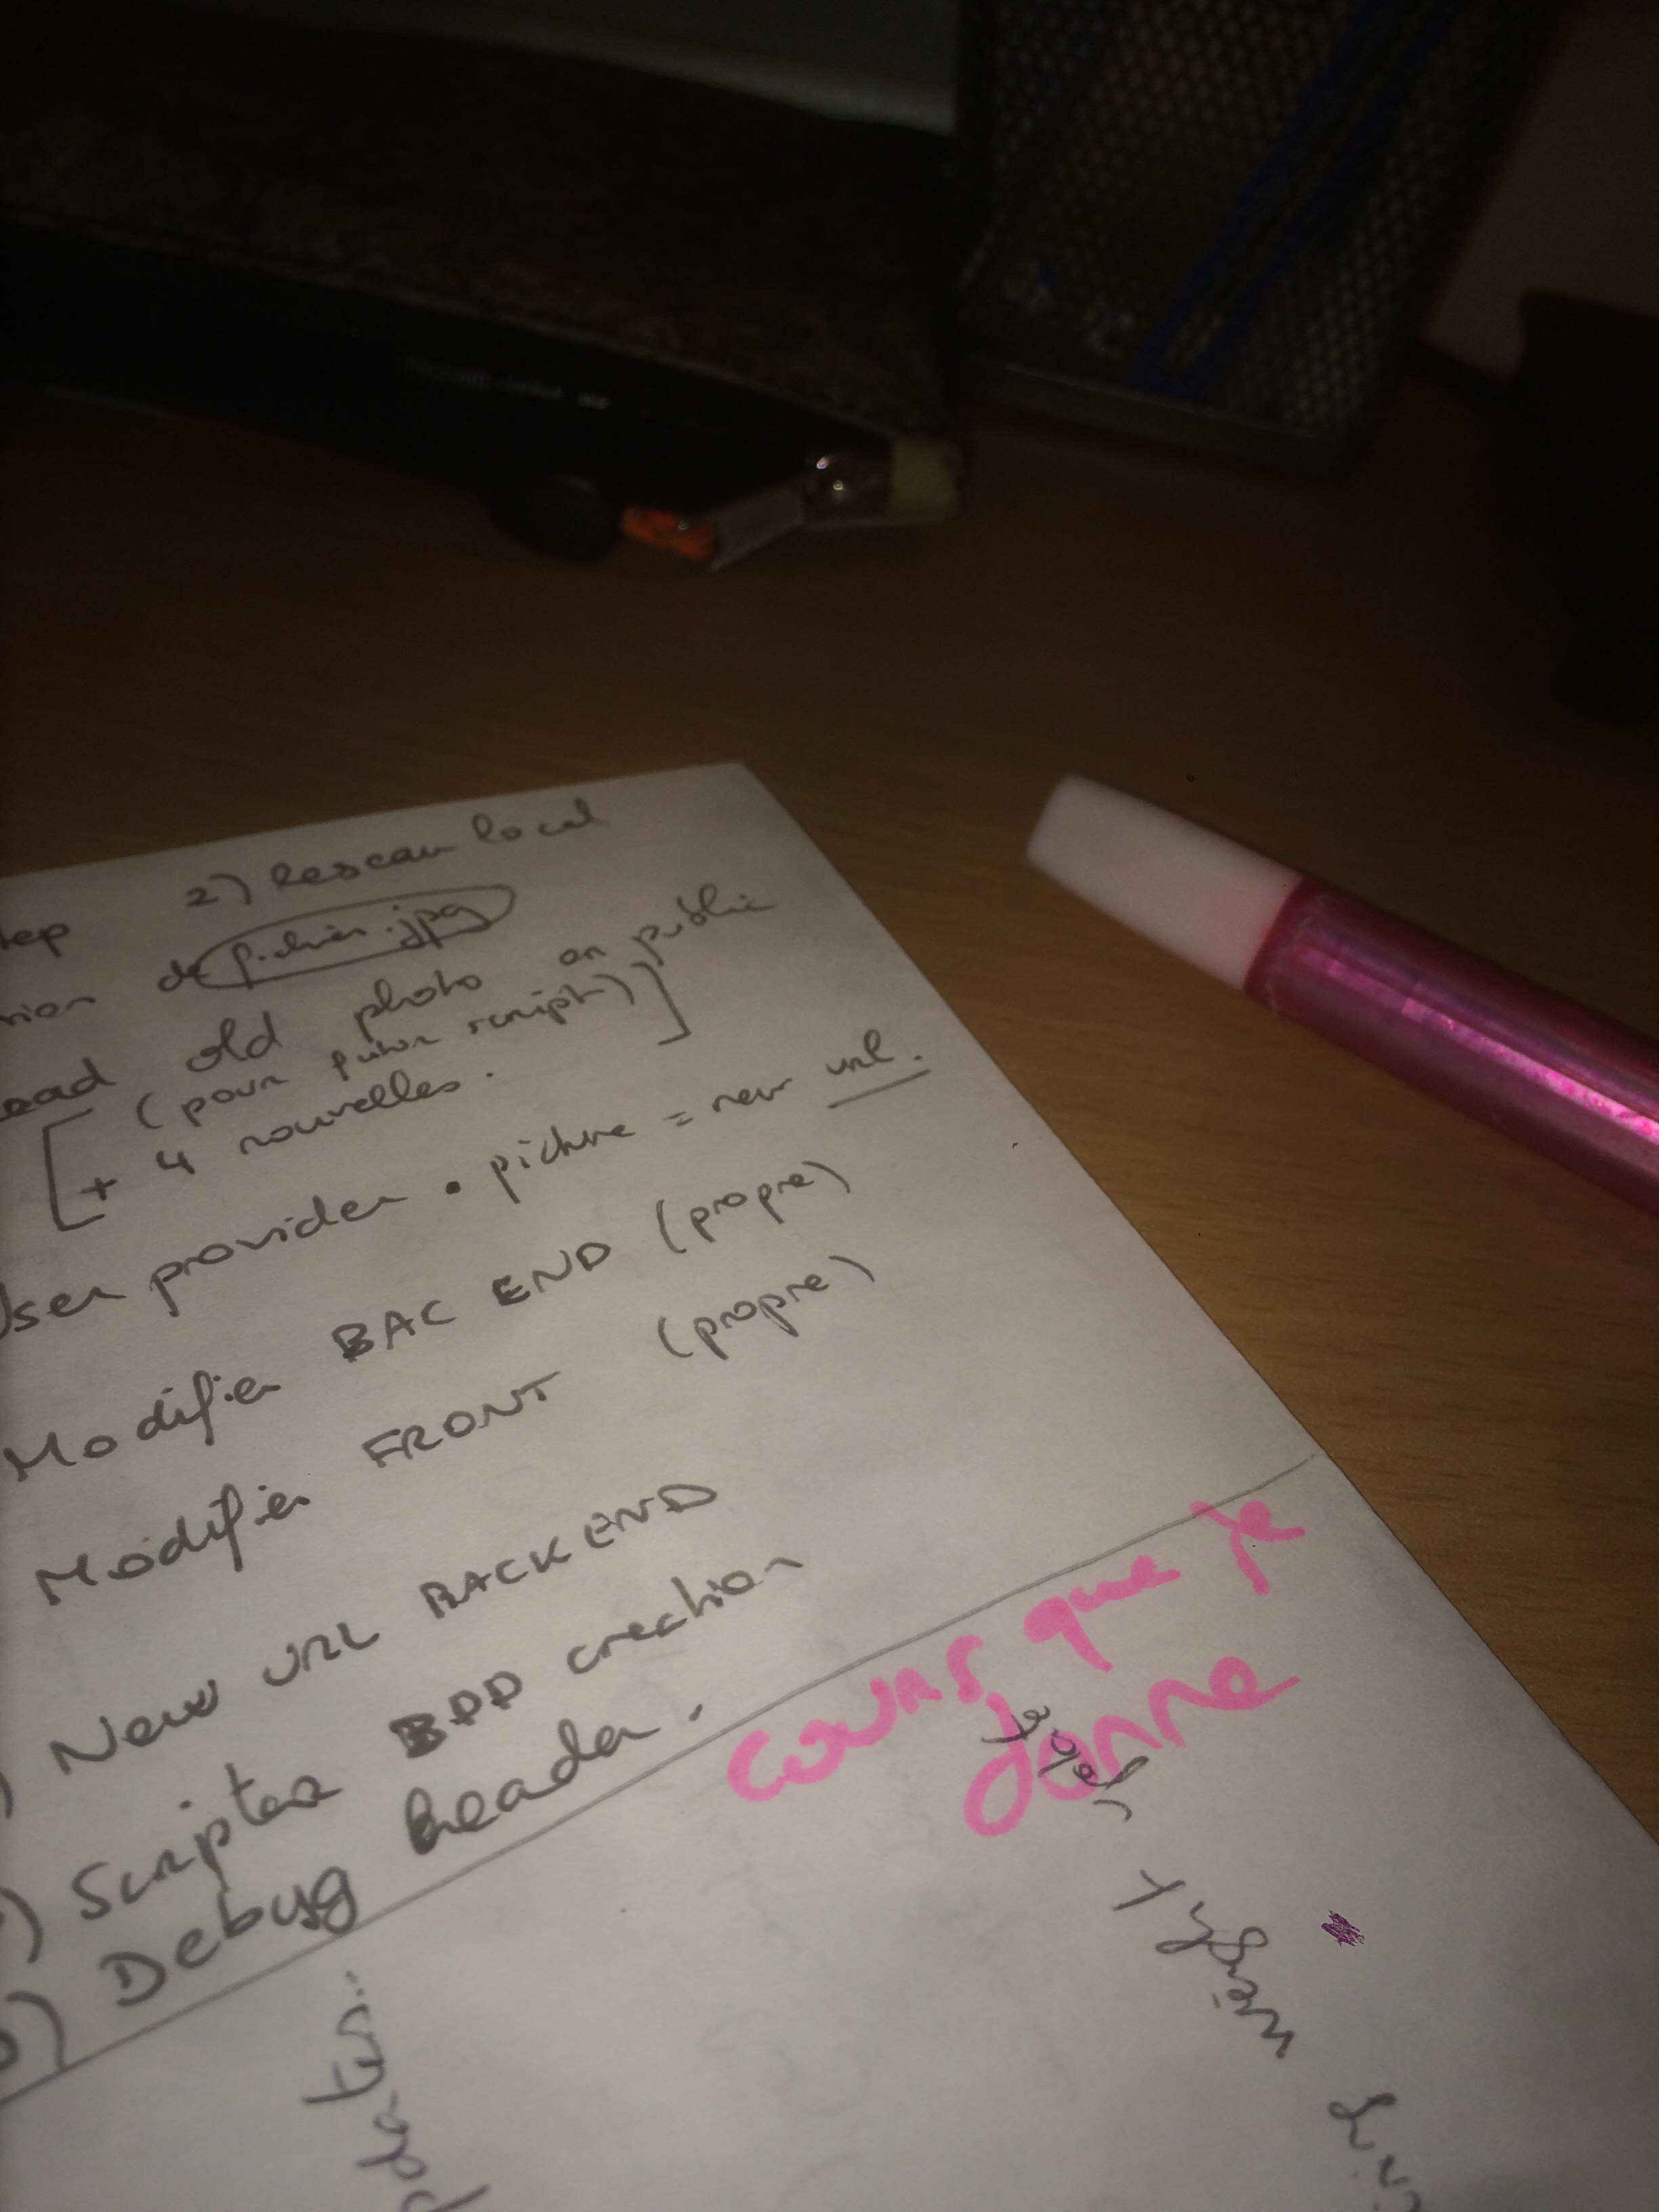 2) Rescan local
de fichier.jpg
old photo on public
[ (pour futur script) ]
+ 4 nouvelles.
User provider . picture = new url.
Modifier BAC END (propre)
Modifier FRONT (propre)
New URL BACKEND
) Scripter BDD creation
) Debug header.
cours que je
donne
weight